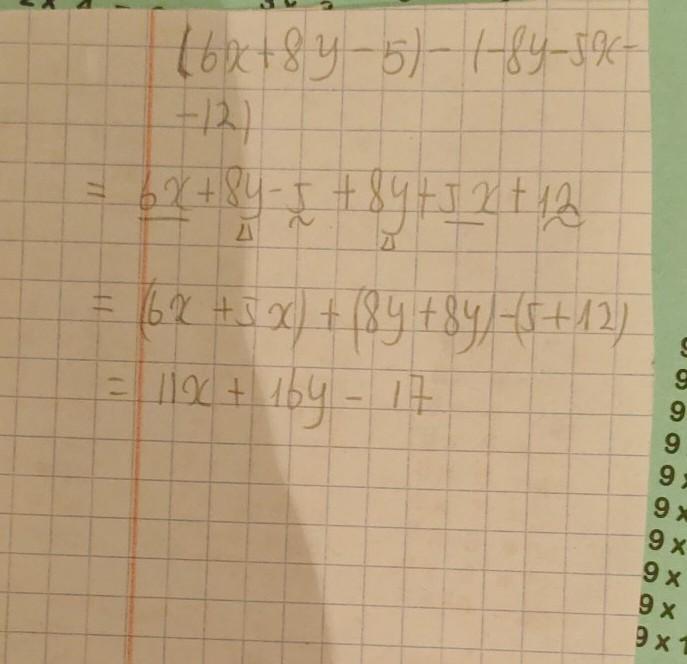 (6x+8y-5)-(-8y-5x-
-12)
= 6x+8y-5+8y+5x+12
= (6x+5x)+(8y+8y)-(5+12)
= 11x+16y-17
9
9
9
9
9 x
9 x
9 x
9 x
9 x
9 x 1